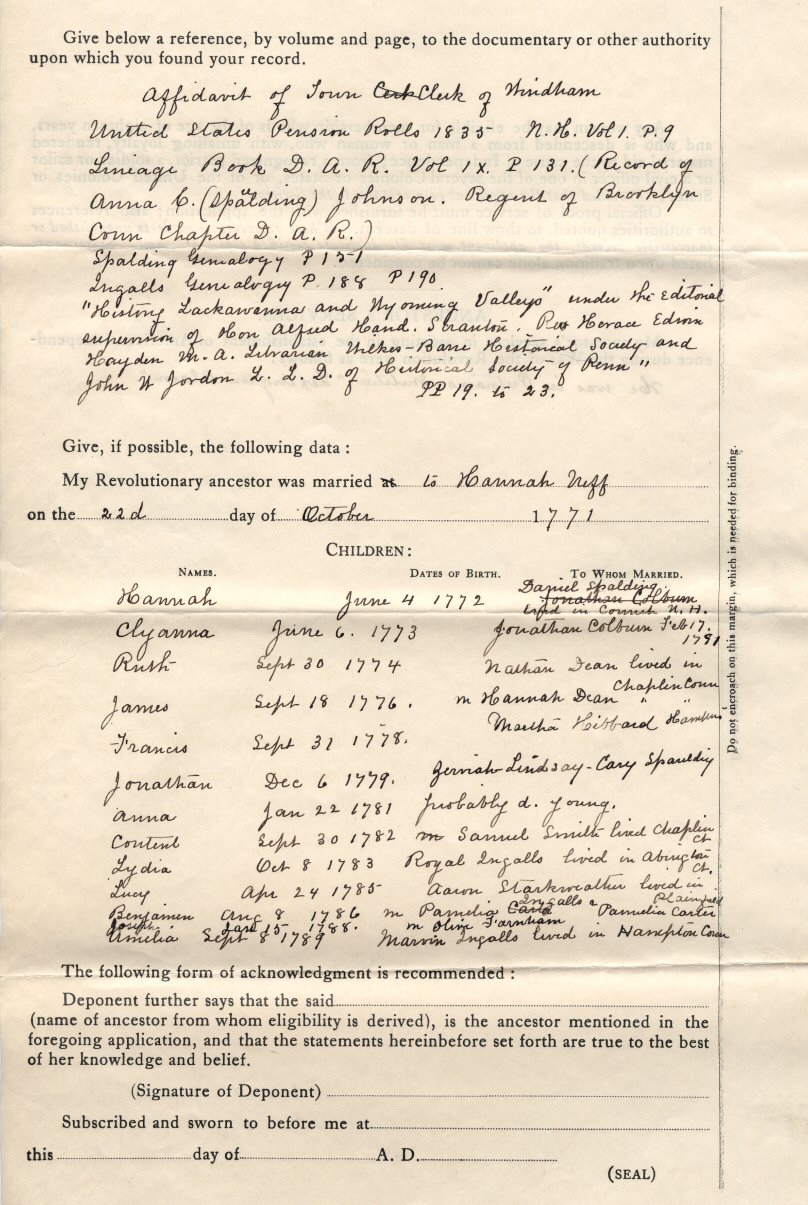 Give below a reference, by volume and page, to the documentary or other authority
upon which you found your record.
Affidavit of Town Clerk of Windham
United States Pension Rolls 1835 N.H. Vol 1. P. 9
Lineage Book D. A. R. Vol 1x. P 131. (Record of
Anna C. (Spalding) Johnson. Regent of Brooklyn
Conn Chapter D. A. R.)
Spalding Genealogy P 151
Ingalls Genealogry P. 188 P 190.
"History Lackawanna and Wyoming Valleys" under the Editorial
supervision of Hon Alfred Hand. Scranton. Rev Horace Edwin
Hayden M. A. Librarian Wilkes-Barre Historical Society and
John W Jordon L. L. D. of Historical Society of Penn"
PP 19. to 23.
Give, if possible, the following data :
My Revolutionary ancestor was married at to Hannah Neff
on the 22d day of October 1771
CHILDREN:
NAMES. DATES OF BIRTH. TO WHOM MARRIED.
Daniel Spalding
Hannah June 4 1772 Jonathan Colburn
lived in Cornish N. H.
Clyanna June 6. 1773 Jonathan Colburn Feb 17.
1791
Ruth Sept 30 1774 Nathan Dean lived in
Chaplin Conn
James Sept 18 1776. m Hannah Dean " "
Martha Hibbard
Francis Sept 31 1778.
Jonathan Dec 6 1779. Zerviah Lindsay - Cary Spaulding
Anna Jan 22 1781 Probably d. young.
Content Sept 30 1782 m Samuel Smith lived Chaplin
Ct
Lydia Oct 8 1783 Royal Ingalls lived in Abington
Ct.
Lucy Apr 24 1785 Aaron Starkweather lived in
Plainfield
Benjamin Aug 8 1786 m Pamelia Ingalls Pamelia Carter
Joseph Jan 15 1788. m Olive Farnham
Amelia Sept 8 1789 Marvin Ingalls lived in Hampton Conn
The following form of acknowledgment is recommended :
Deponent further says that the said
(name of ancestor from whom eligibility is derived), is the ancestor mentioned in the
foregoing application, and that the statements hereinbefore set forth are true to the best
of her knowledge and belief.
(Signature of Deponent)
Subscribed and sworn to before me at
this day of A. D.
(SEAL)
Do not encroach on this margin, which is needed for binding.